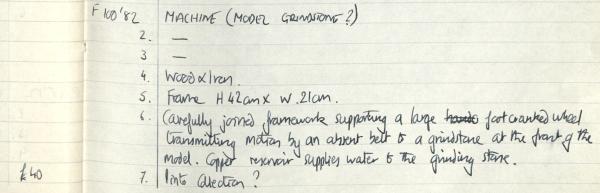 F 100'82 MACHINE (MODEL GRINDSTONE?)
2. —
3 —
4. Wood & Iron.
5. Frame H 42cm x W. 21cm.
6. Carefully joined framework supporting a large foot cranked wheel
transmitting motion by an absent belt to a grindstone at the front of the
model. Copper reservoir supplies water to the grinding stone.
£40 7. Pinto Collection?